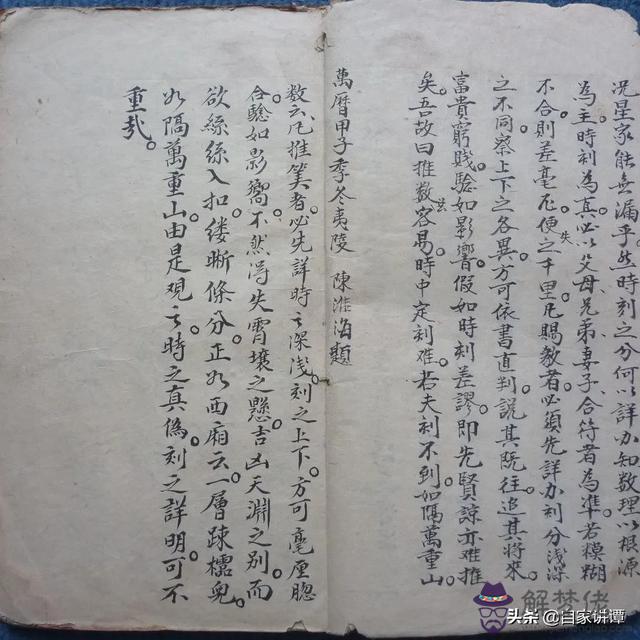 况星家能無漏乎然時刻之分何以詳加知数理以根源
為主時刻為真必以父母兄弟妻子合符者為準若模糊
不合則差毫厘便失之千里凡賜教者必須先詳加刻分淺深
之不同察上下之各異。方可依書直判説其既往追其將來。
富貴窮賤。驗如影響。假如時刻差謬。即先賢諒亦难推
矣。吾故曰推数容易。時中定刻难。若夫刻不到如隔萬重山
萬曆甲子季冬夷陵 陳淮海題
数云凡推筭者。必先詳時之深浅。刻之上下。方可毫厘脗
合。驗如影嚮。不然得失霄壤之懸。吉凶天淵之别。而
欲絲絲入扣。缕晰條分。正如西廂云。一層疎櫺兜。
如隔萬重山。由是观之。時之真偽。刻之詳明。可不
重哉。
解梦佬
头条 @百家讲谭